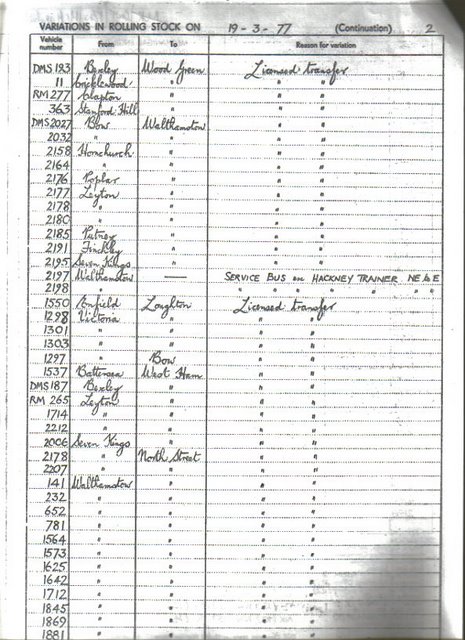 VARIATIONS IN ROLLING STOCK ON 19-3-77 (Continuation) 2
Vehicle number From To Reason for variation
DMS 193 Bexley Wood Green Licensed transfer
11 Cricklewood " " "
RM 277 Clapton " " "
363 Stamford Hill " " "
DMS 2027 Bow Walthamstow " "
2032 " " " "
2158 Hornchurch " " "
2164 " " " "
2176 Poplar " " "
2177 Leyton " " "
2178 " " " "
2180 " " " "
2185 Putney " " "
2191 Finchley " " "
2195 Seven Kings " " "
2197 Walthamstow — SERVICE BUS on HACKNEY TRAINER
2198 " " " " " " "
1550 Enfield Loughton Licensed transfer
1298 Victoria " " "
1301 " " " "
1303 " " " "
1297 " Bow " "
1537 Battersea West Ham " "
DMS 187 Bexley " " "
RM 265 Leyton " " "
1714 " " " "
2212 " " " "
2006 Seven Kings " " "
2178 " North Street " "
2207 " " " "
141 Walthamstow " " "
232 " " " "
652 " " " "
781 " " " "
1564 " " " "
1573 " " " "
1625 " " " "
1642 " " " "
1712 " " " "
1845 " " " "
1869 " " " "
1881 " " " "